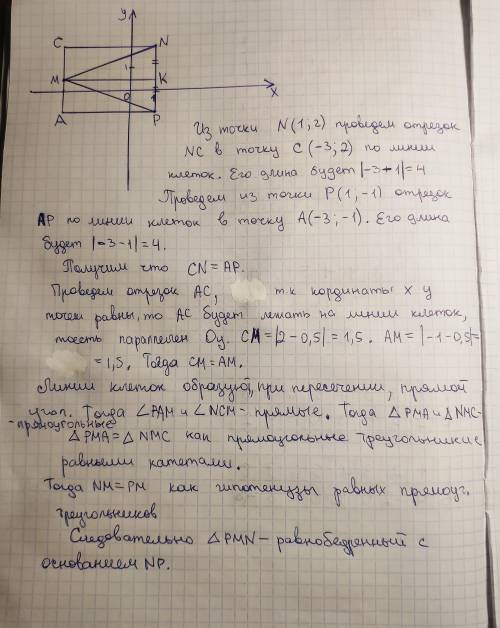 y
C N
1
M K
0 1 x
A P
Из точки N(1,2) проведем отрезок
NC в точку C(-3;2) по линии
клеток. Его длина будет |-3-1|=4
Проведем из точки P(1,-1) отрезок
AP по линии клеток в точку A(-3;-1). Его длина
будет |-3-1|=4.
Получим что CN=AP.
Проведем отрезок AC, т.к кординаты x у
точек равны, то AC будет лежать на линии клеток,
тоесть параллелен Oy. CM=|2-0,5|=1,5. AM=|-1-0,5|=
=1,5. Тогда CM=AM.
Линии клеток образуют, при пересечении, прямой
угол. Тогда ∠PAM и ∠NCM-прямые. Тогда △PMA и △NMC-
-прямоугольные
△PMA=△NMC как прямоугольные треугольники с
равными катетами.
Тогда NM=PM как гипотенуззы равных прямоуг.
треугольников
Следовательно △PMN-равнобедренный с
основанием NP.